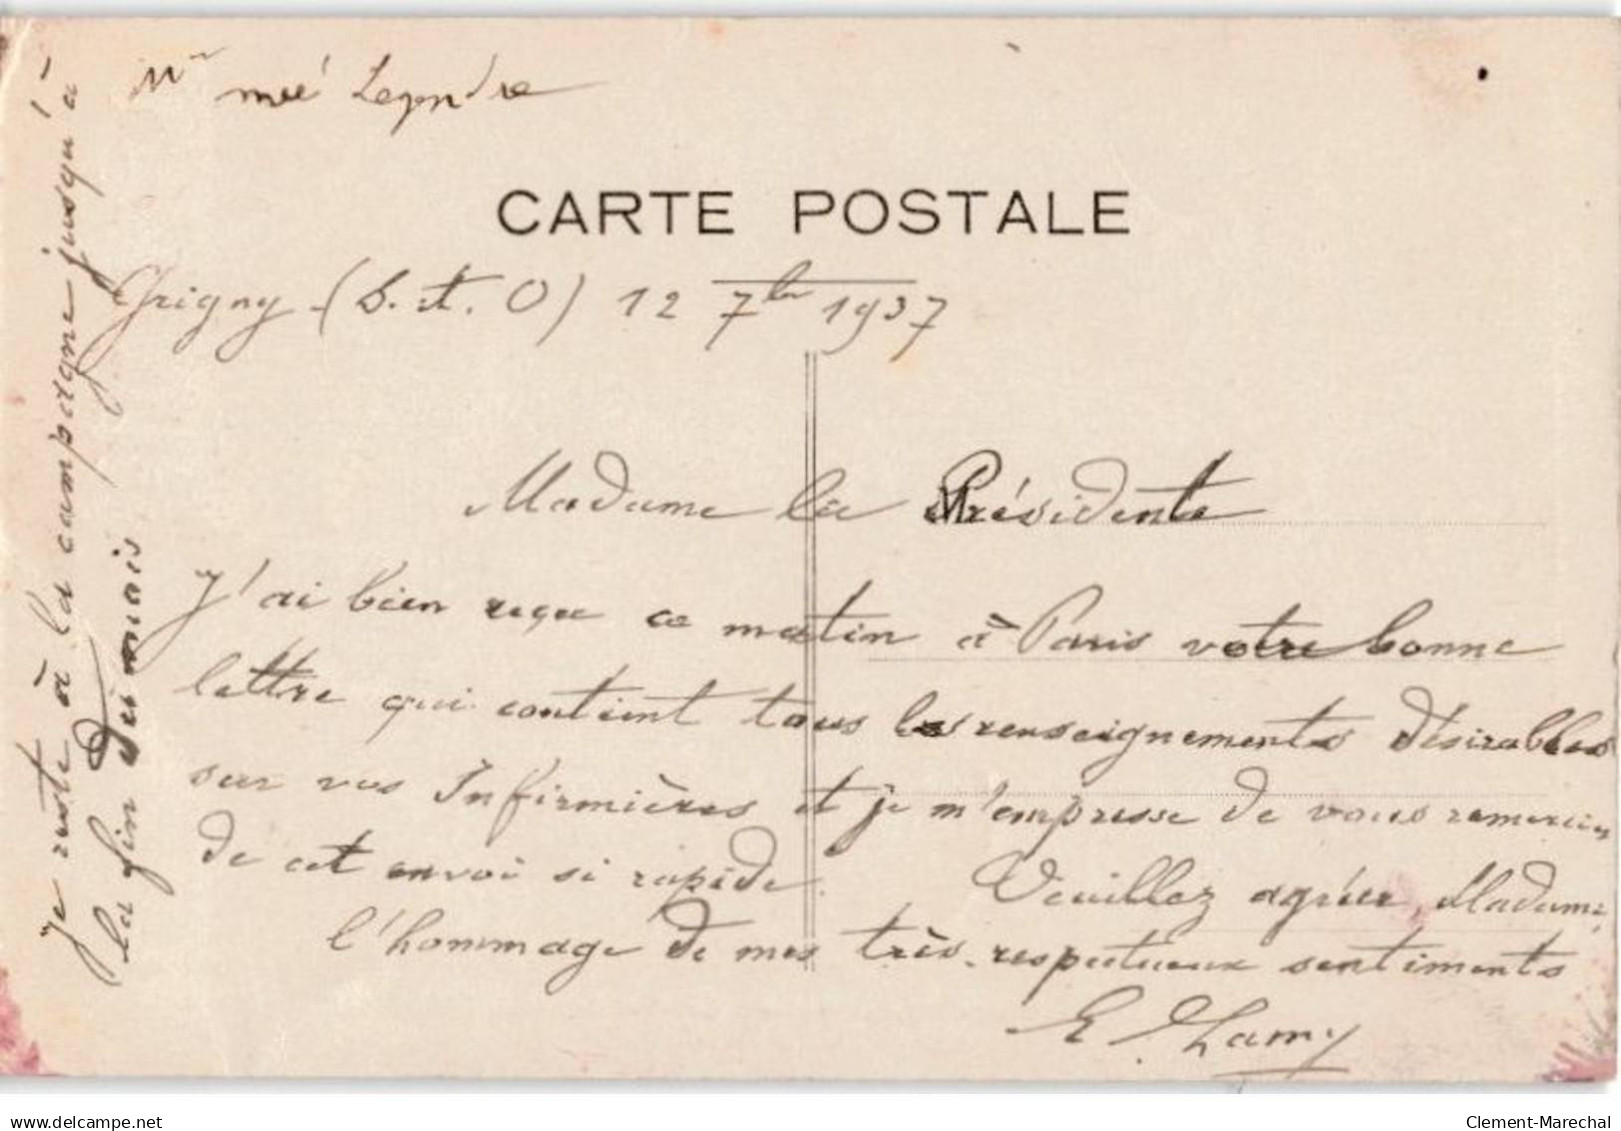 Mr née Legendre
CARTE POSTALE
Grigny (S. et. O) 12 7bre 1937
Madame la Présidente
J'ai bien reçu ce matin à Paris votre bonne
lettre qui contient tous les renseignements désirables
sur vos Infirmières et je m'empresse de vous remercier
de cet envoi si rapide. Veuillez agréer, Madame,
l'hommage de mes très respectueux sentiments
E. Lamy
Je reste à la campagne jusqu'à
la fin du mois
delcampe.net
Clement-Marechal